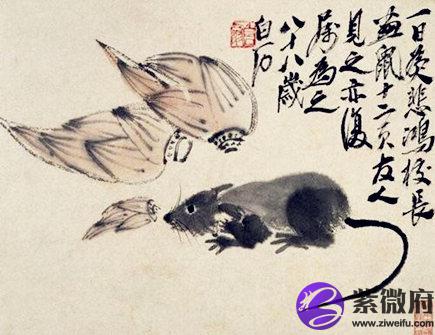 一日悲鴻校長
画鼠十二頁友人
見之亦復
属為之
八十八歲
白石
紫微府
www.ziweifu.com